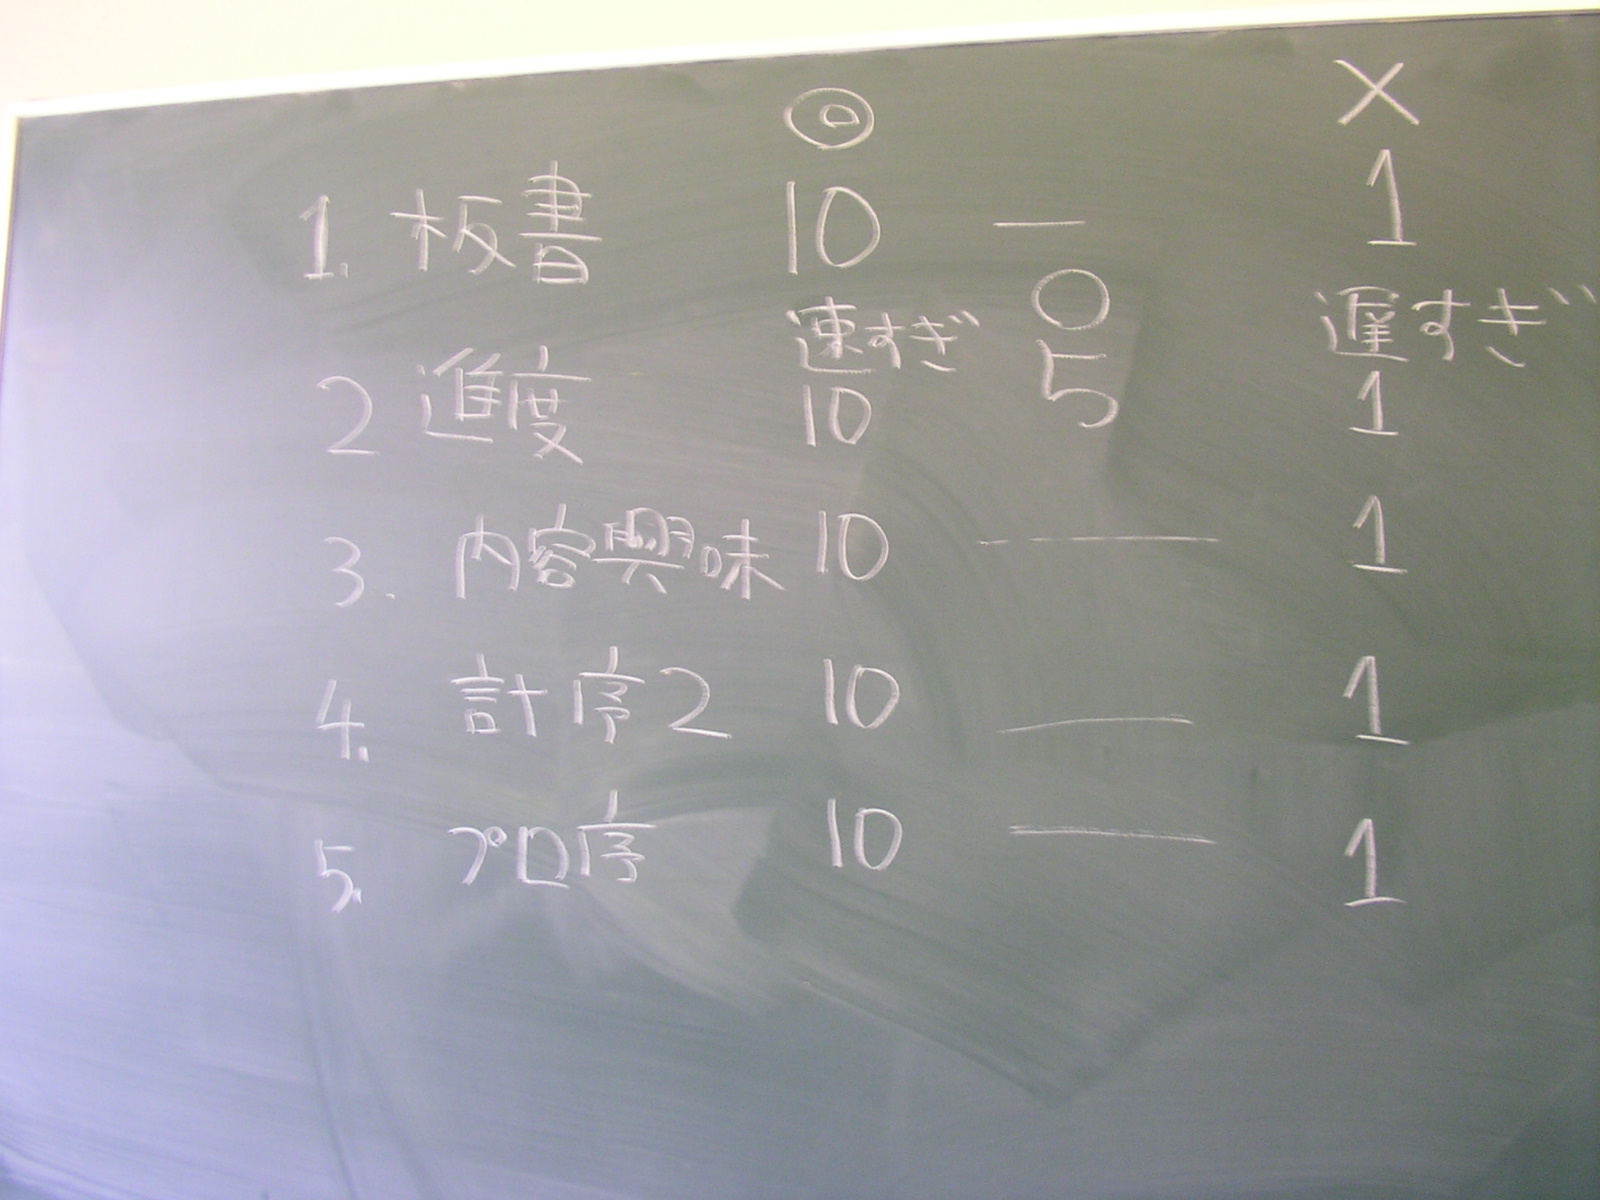 ◎ ×
1. 板書 10 — 1
速すぎ ○ 遅すぎ
2 進度 10 5 1
3. 内容興味 10 — 1
4. 計序2 10 — 1
5. プロ序 10 — 1